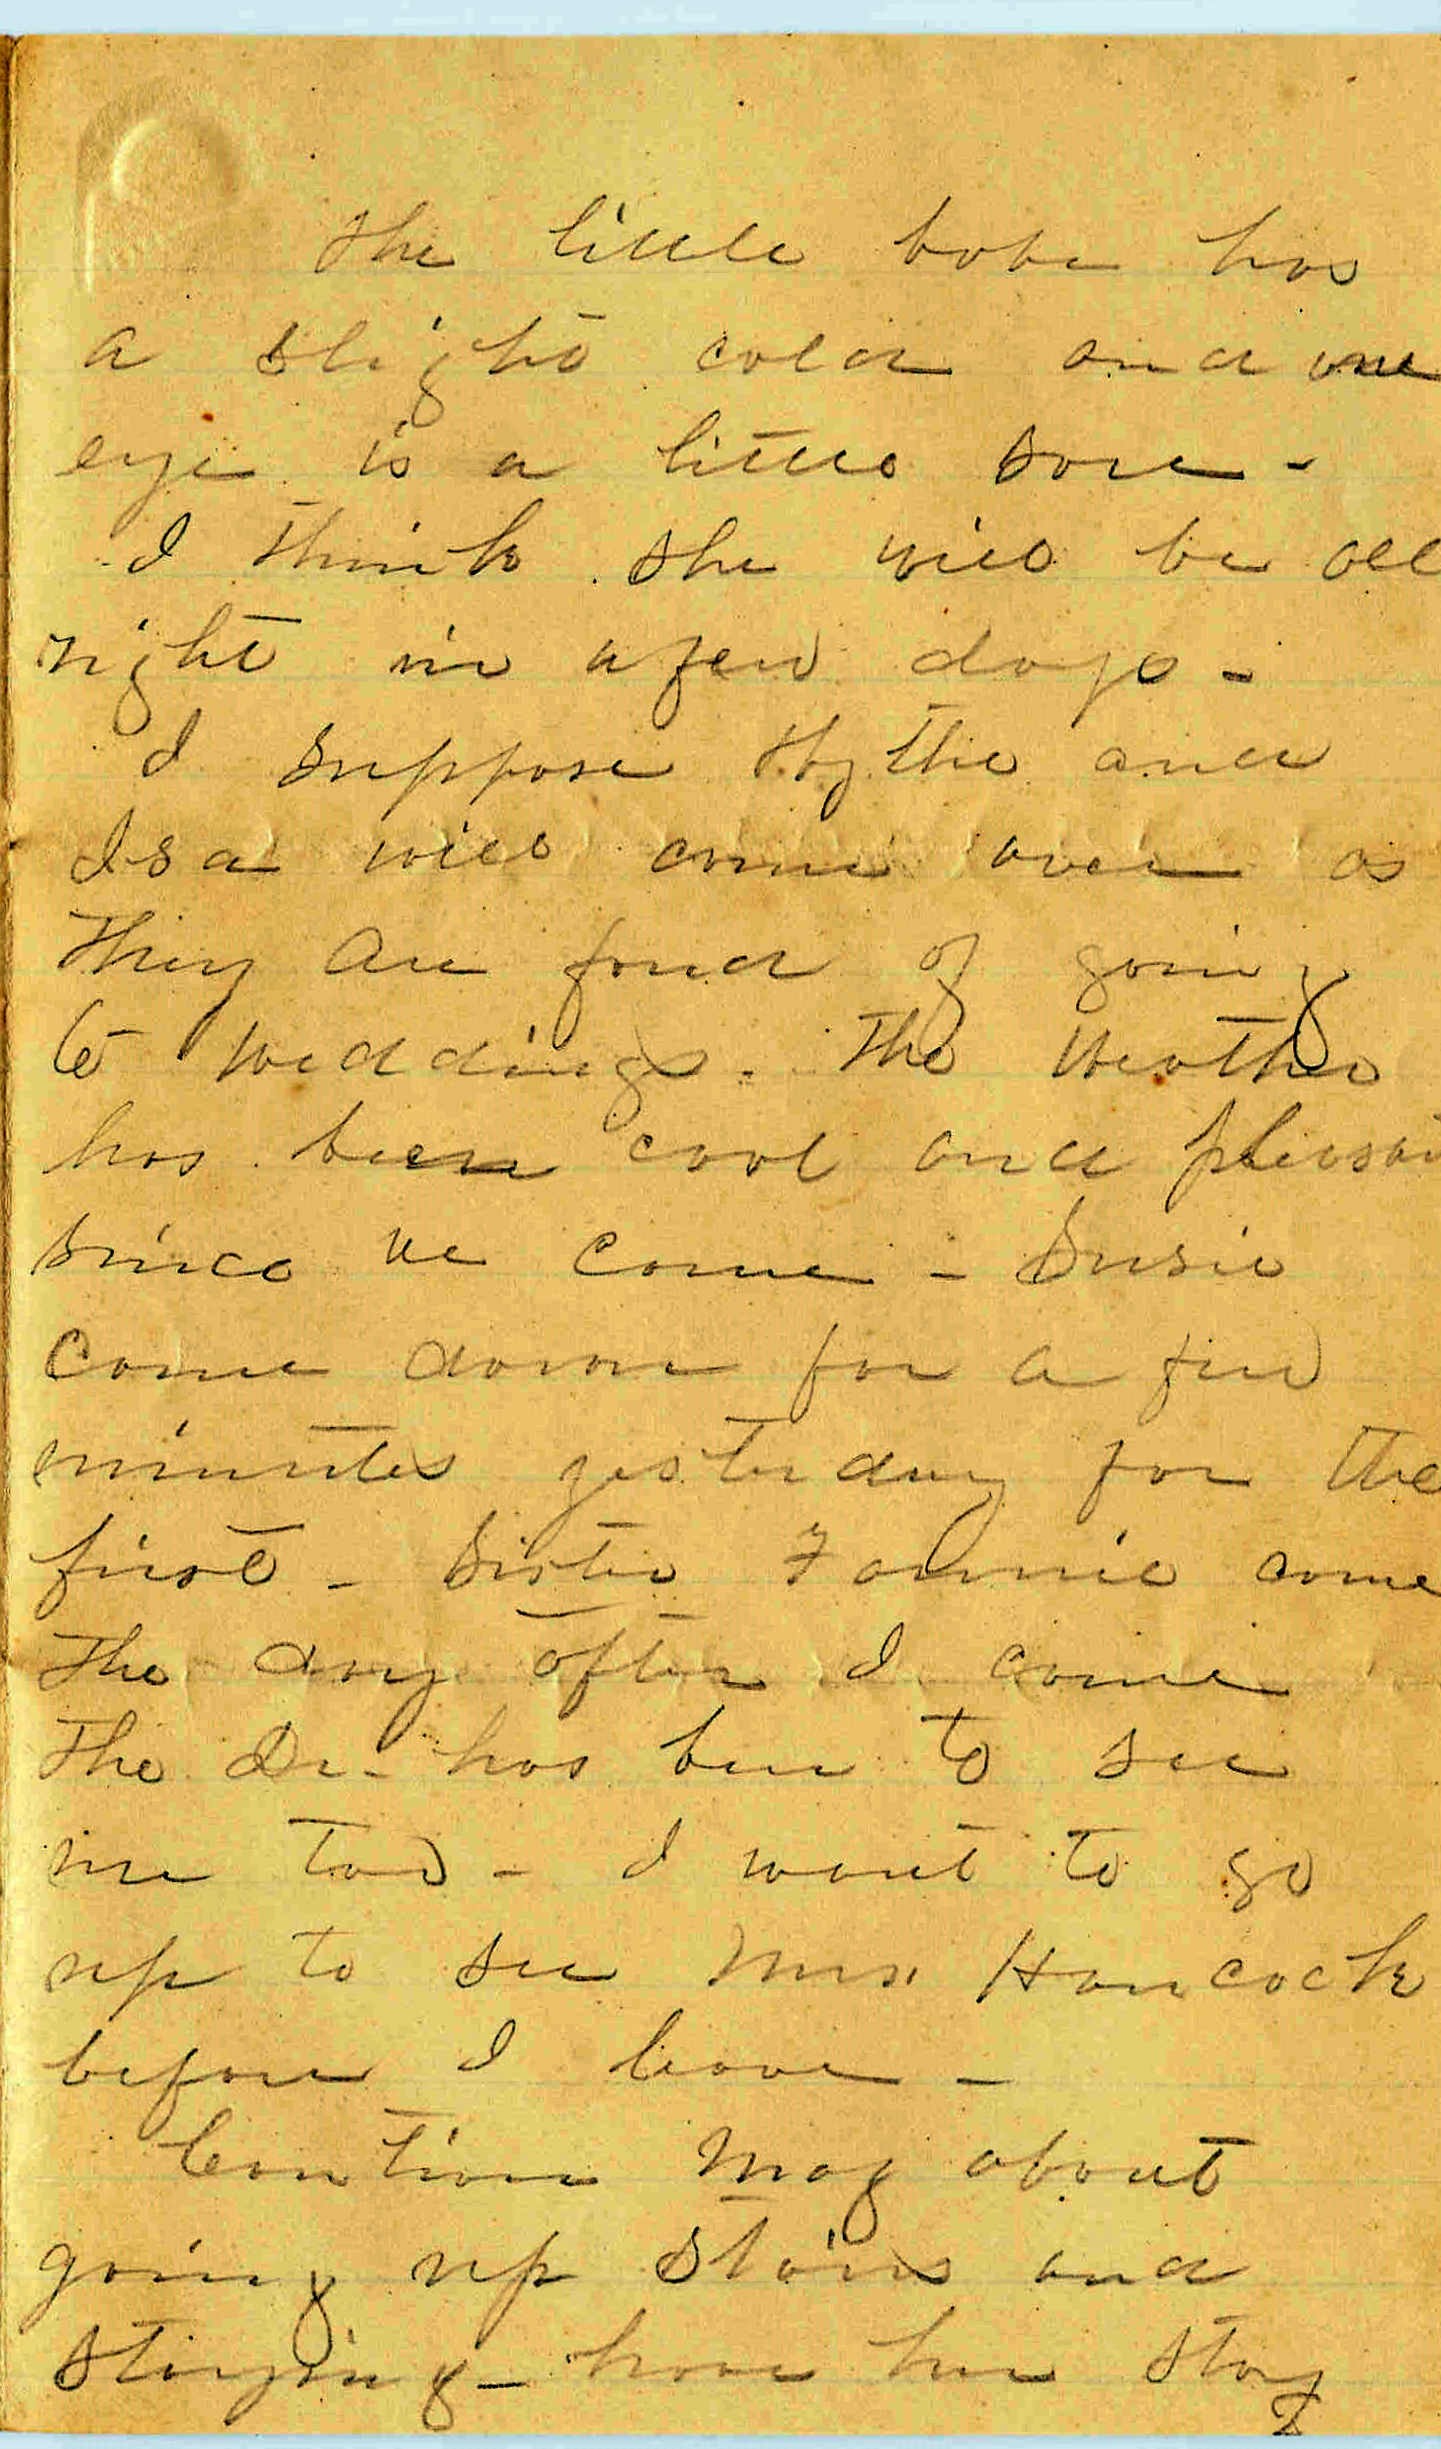 The little babe has
a slight cold and one
eye is a little sore -
I think she will be all
right in a few days -
I suppose and
Isa will come over as
They are fond of going
to weddings. The Weather
has been cool and pleasan
since we come - Susie
come down for a few
minutes yesterday for the
first - Sister Fannie come
The day after I come
The Dr - has been to see
me too - I want to go
up to see Mrs. Hancock
before I leave -
Caution May about
going up stairs and
staying - have her stay